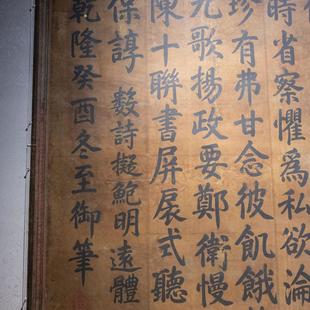 時省察懼爲私欲淪
珍有弗甘念彼飢餓
九歌揚政要鄭衛慢
陳十聯書屏扆式聽
保諄 數詩擬鮑明遠體
乾隆癸酉冬至御筆